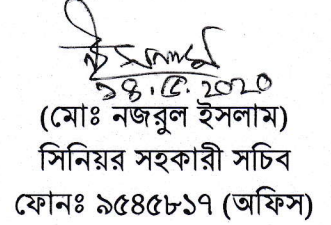 ১৪.৫.২০২০
(মোঃ নজরুল ইসলাম)
সিনিয়র সহকারী সচিব
ফোনঃ ৯৫৪৫৮১৭ (অফিস)